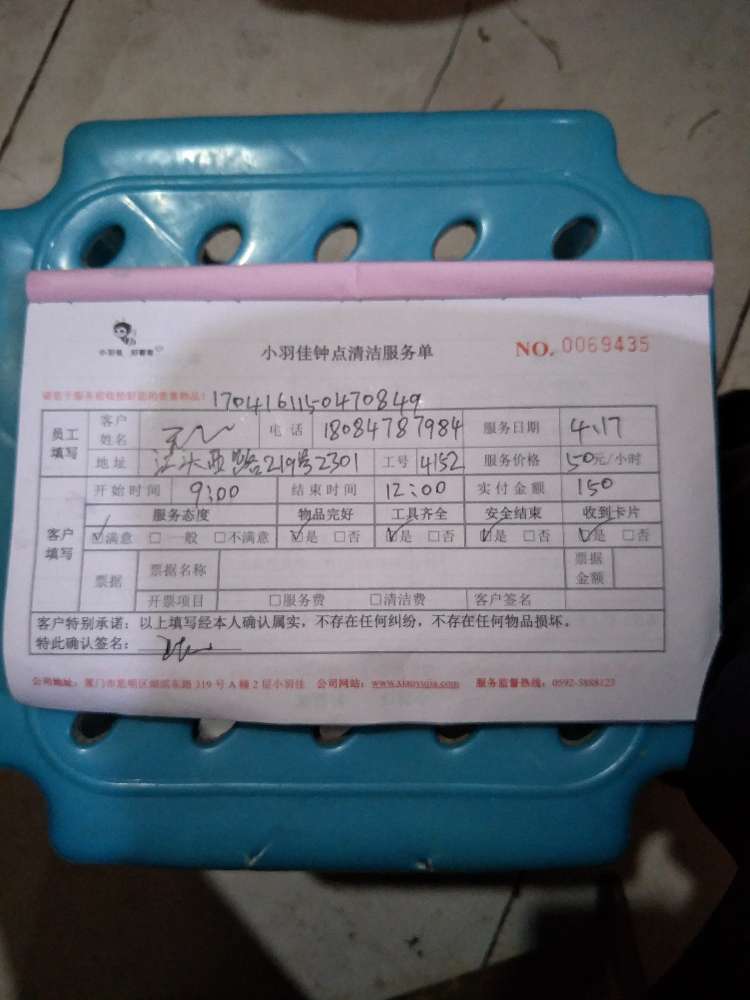 小羽佳 好帮帮
小羽佳钟点清洁服务单
NO. 0069435
1704161150470849
员工填写 客户姓名 电话 18084787984 服务日期 4.17
地址 江头西路219号2301 工号 4152 服务价格 50元/小时
客户填写 开始时间 9:00 结束时间 12:00 实付金额 150
服务态度 物品完好 工具齐全 安全结束 收到卡片
☑满意 □一般 □不满意 ☑是 □否 ☑是 □否 ☑是 □否 ☑是 □否
票据 票据名称 票据金额
开票项目 □服务费 □清洁费 客户签名
客户特别承诺：以上填写经本人确认属实，不存在任何纠纷，不存在任何物品损坏。
特此确认签名：
公司地址：厦门市思明区湖滨东路319号A幢2层小羽佳 公司网站：www.xiaoyujia.com 服务监督热线：0592-5888123